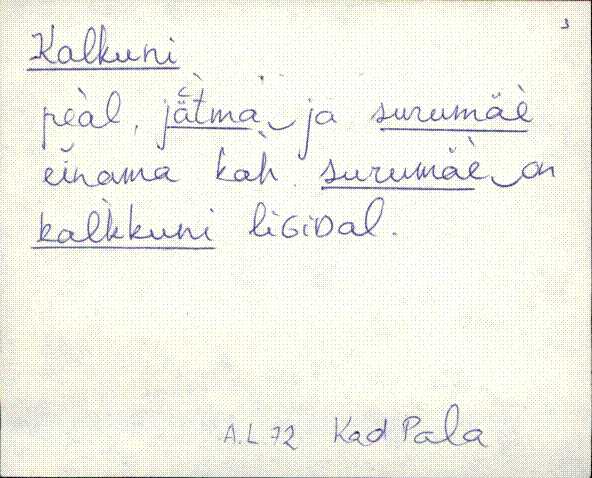 3
Kalkuni
pèal, jä̀tma ja surumäè
eìnama kàh. surumäè on
kalk̀kuni liGiDal.
A.L 72 Kad Pala